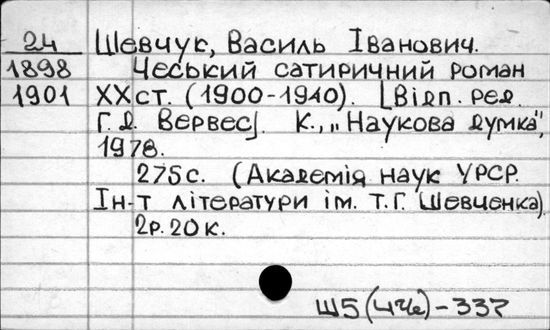 24 Шевчук, Василь Іванович.
1898 Чеський сатиричний роман
1901 ХХ ст. (1900-1940). [Відп. ред.
Г. Д. Вервес]. К., "Наукова думка",
1978.
275 с. (Академія наук УРСР.
Ін-т літератури ім. Т. Г. Шевченка).
2 р. 20 к.
Ш5(4Че)-337